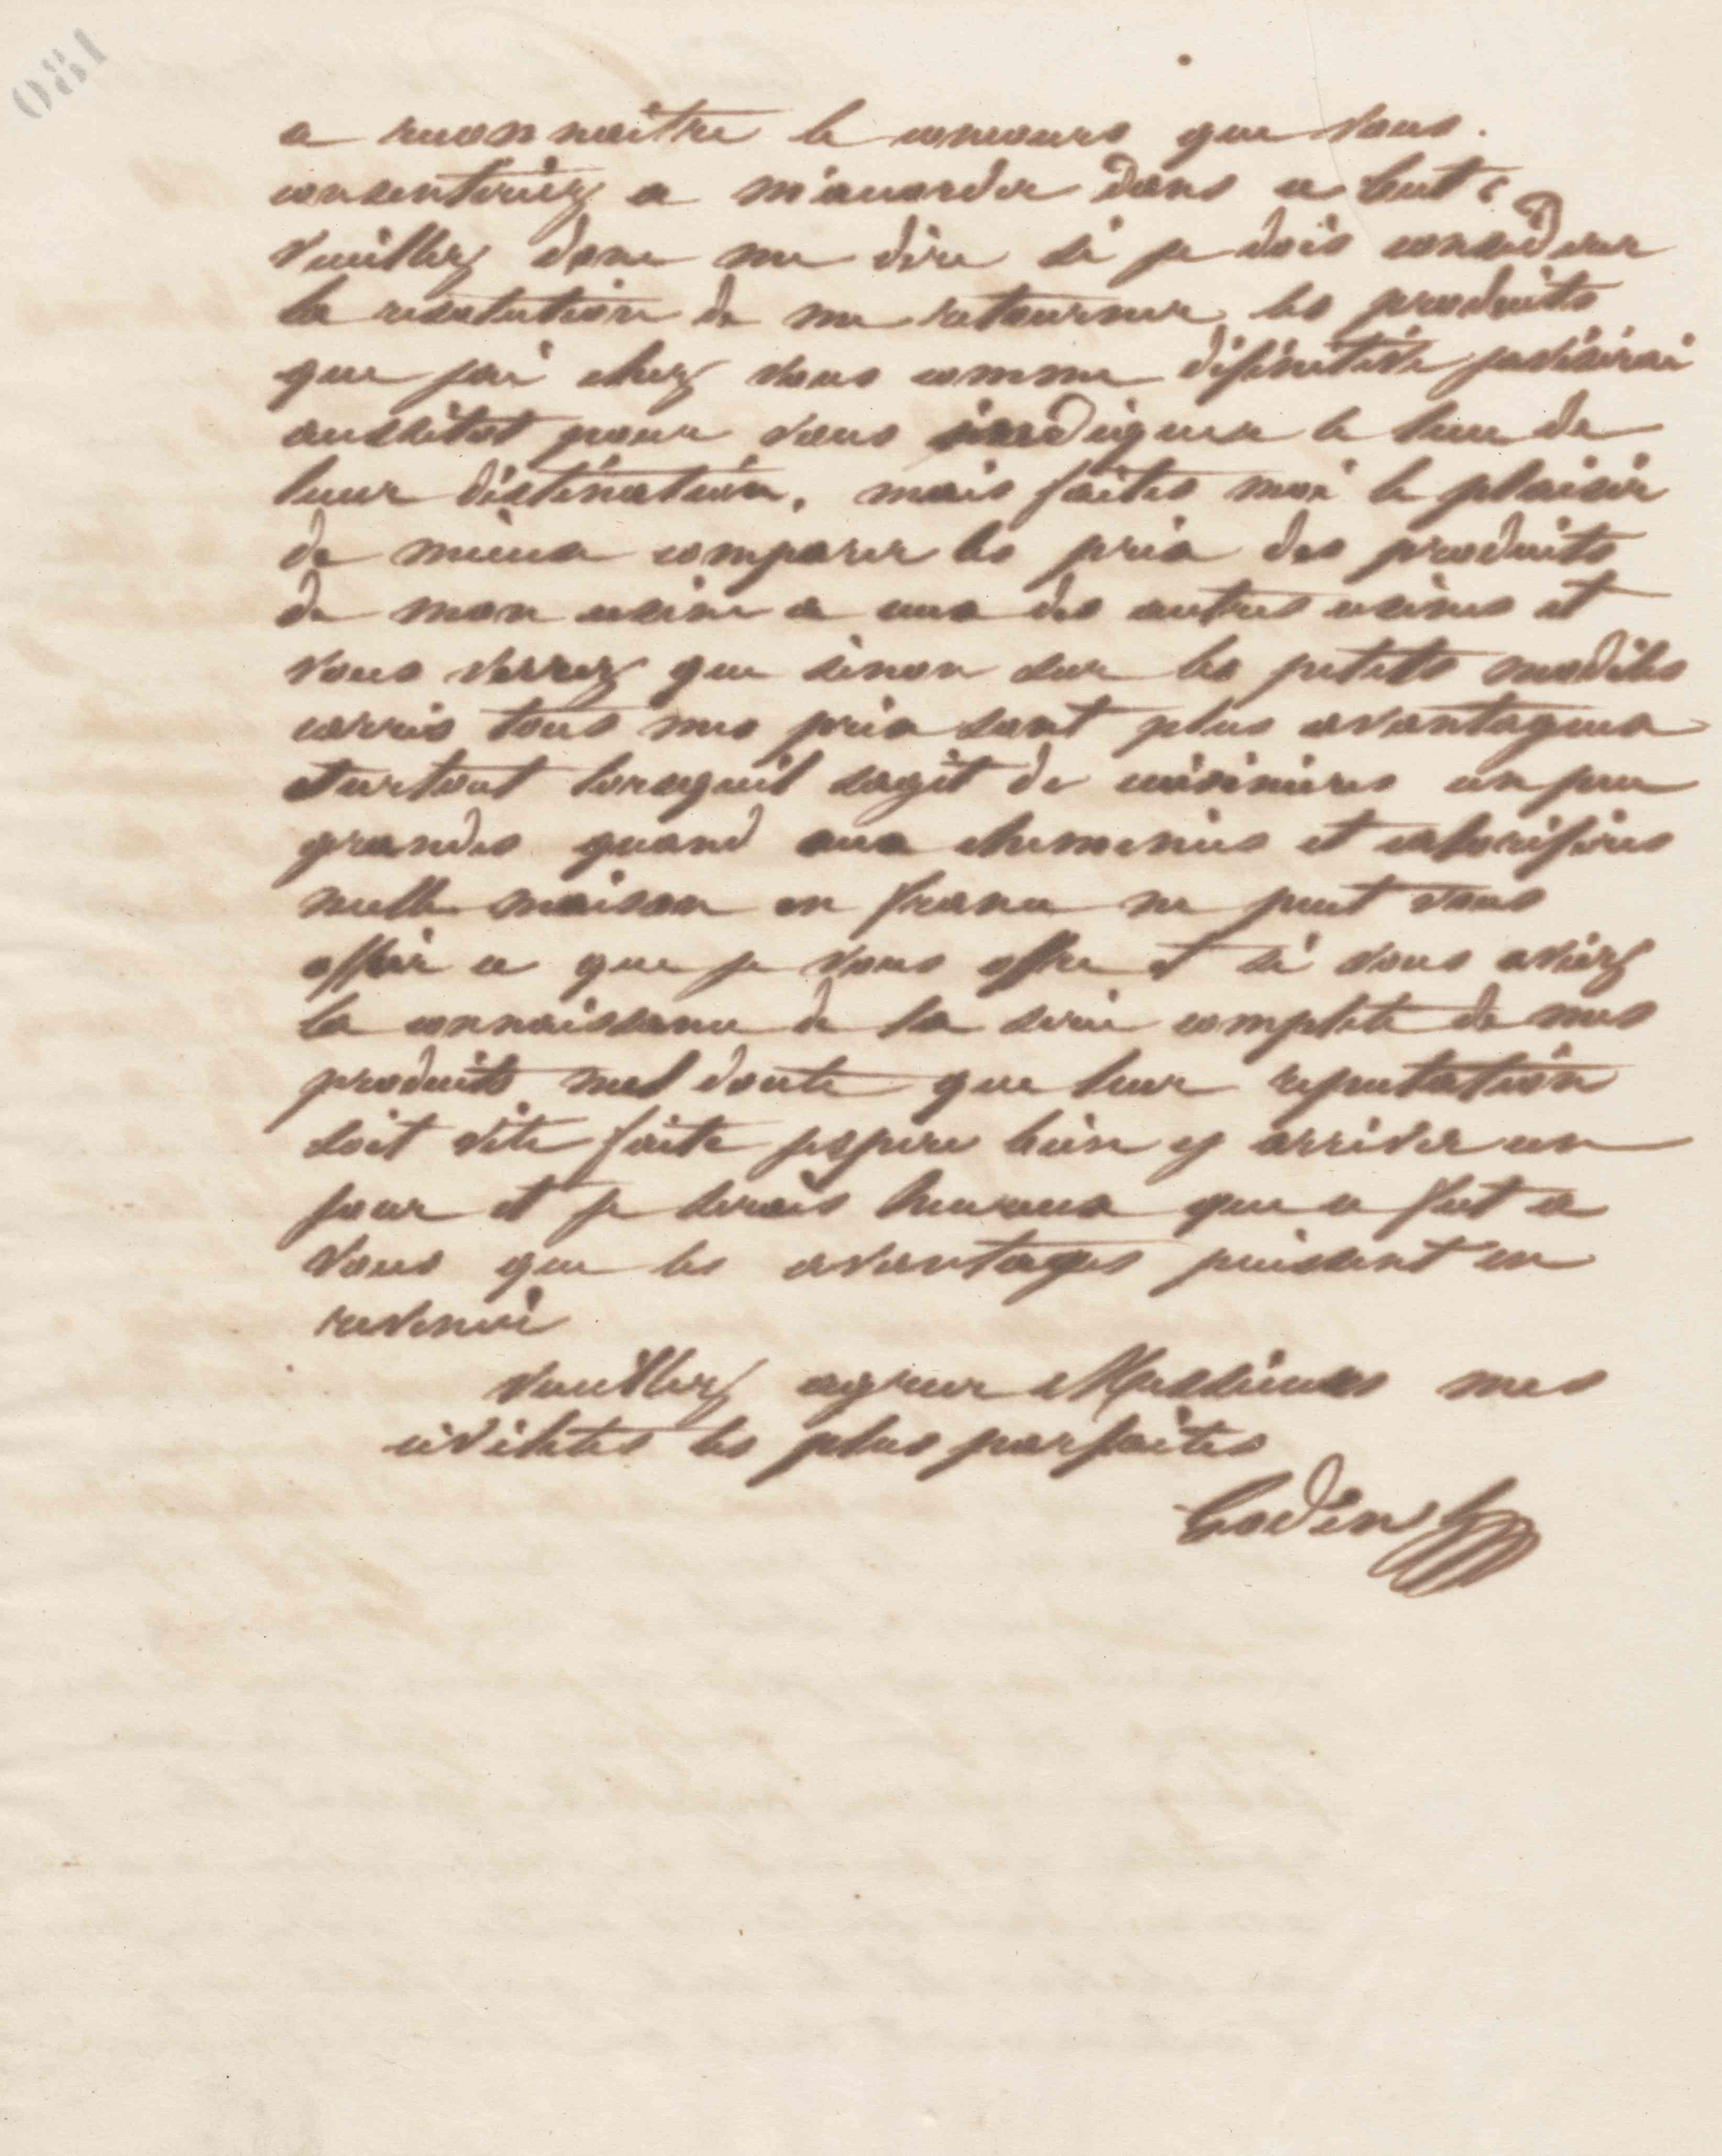 081
a reconnaitre le concours que vous
consentiriez a m'accorder dans ce but.
veuillez donc me dire si je dois considerer
la resolution de me retourner les produits
que jai chez vous comme definitive javiserai
aussitot pour vous indiquer le lieu de
leur distination, mais faites moi le plaisir
de mieux comparer les prix des produits
de mon usine a ceux des autres usines et
vous verrez que sinon sur les petits modeles
carrés tous mes prix sont plus avantageux
surtout lorsquil sagit de cuisinieres un peu
grandes quand aux cheminées et calorifères
nulle maison en france ne peut vous
offrir ce que je vous offre et si vous aviez
la connaissance de la serie complete de mes
produits nul doute que leur reputation
soit vite faite jespere bien y arriver un
jour et je serais heureux que ce fut a
vous que les avantages puissent en
revenir
veuillez agreer Messieurs mes
civilites les plus parfaites
Godin